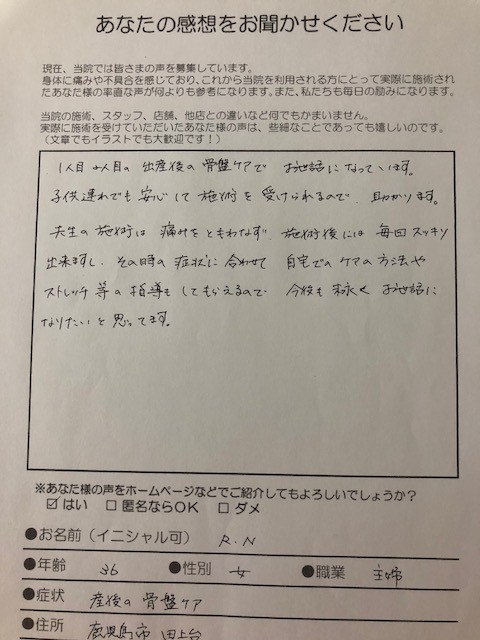 あなたの感想をお聞かせください
現在、当院では皆さまの声を募集しています。
身体に痛みや不具合を感じており、これから当院を利用される方にとって実際に施術され
たあなた様の率直な声が何よりも参考になります。また、私たちも毎日の励みになります。
当院の施術、スタッフ、店舗、他店との違いなど何でもかまいません。
実際に施術を受けていただいたあなた様の声は、些細なことであっても嬉しいのです。
(文章でもイラストでも大歓迎です!)
1人目2人目の出産後の骨盤ケアでお世話になっています。
子供連れでも安心して施術を受けられるので、助かります。
先生の施術は痛みをともわなず、施術後には毎回スッキリ
出来ますし、その時の症状に合わせて自宅でのケアの方法や
ストレッチ等の指導もしてもらえるので今後も末永くお世話に
なりたいと思ってます。
※あなた様の声をホームページなどでご紹介してもよろしいでしょうか?
☑ はい □ 匿名ならOK □ ダメ
●お名前(イニシャル可) R.N
●年齢 36 ●性別 女 ●職業 主婦
●症状 産後の骨盤ケア
●住所 鹿児島市田上台